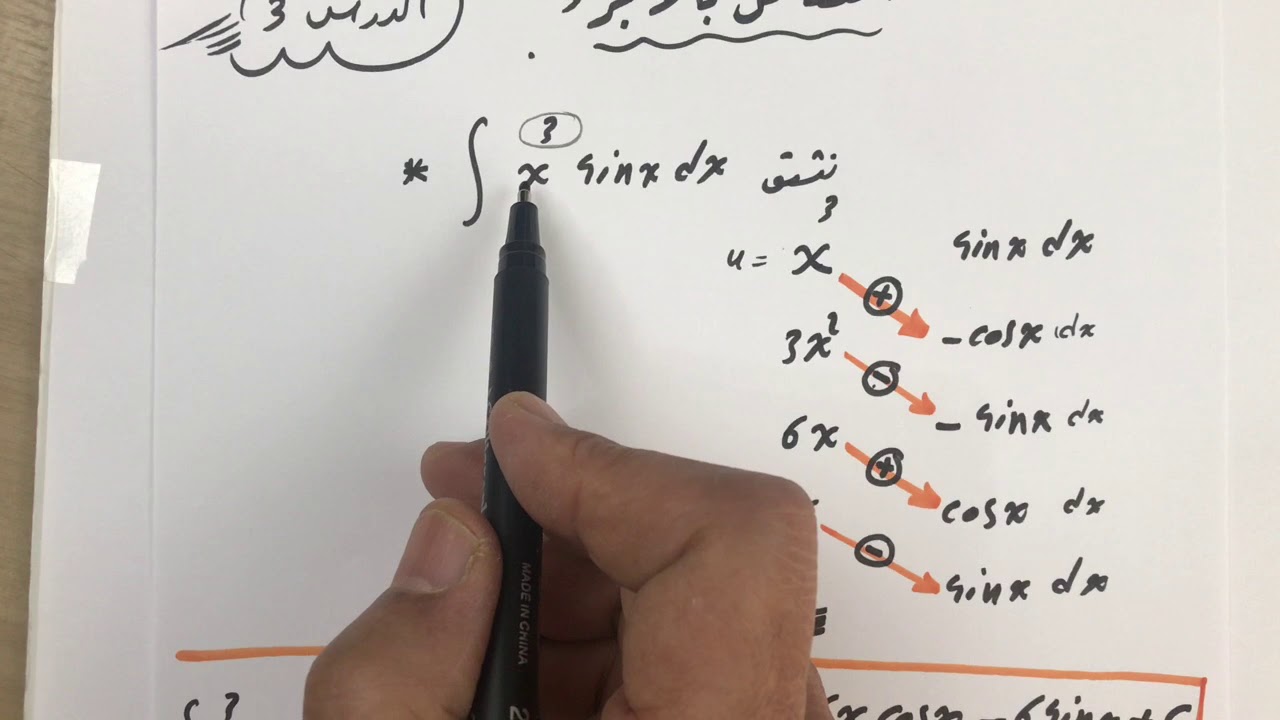 الدرس 3
* ∫ x³ sinx dx نشتق
u = x³ sinx dx
+
3x² - cosx dx
-
6x - sinx dx
+
cosx dx
-
sinx dx
MADE IN CHINA
∫ 3
6x cosx - 6 sinx + C